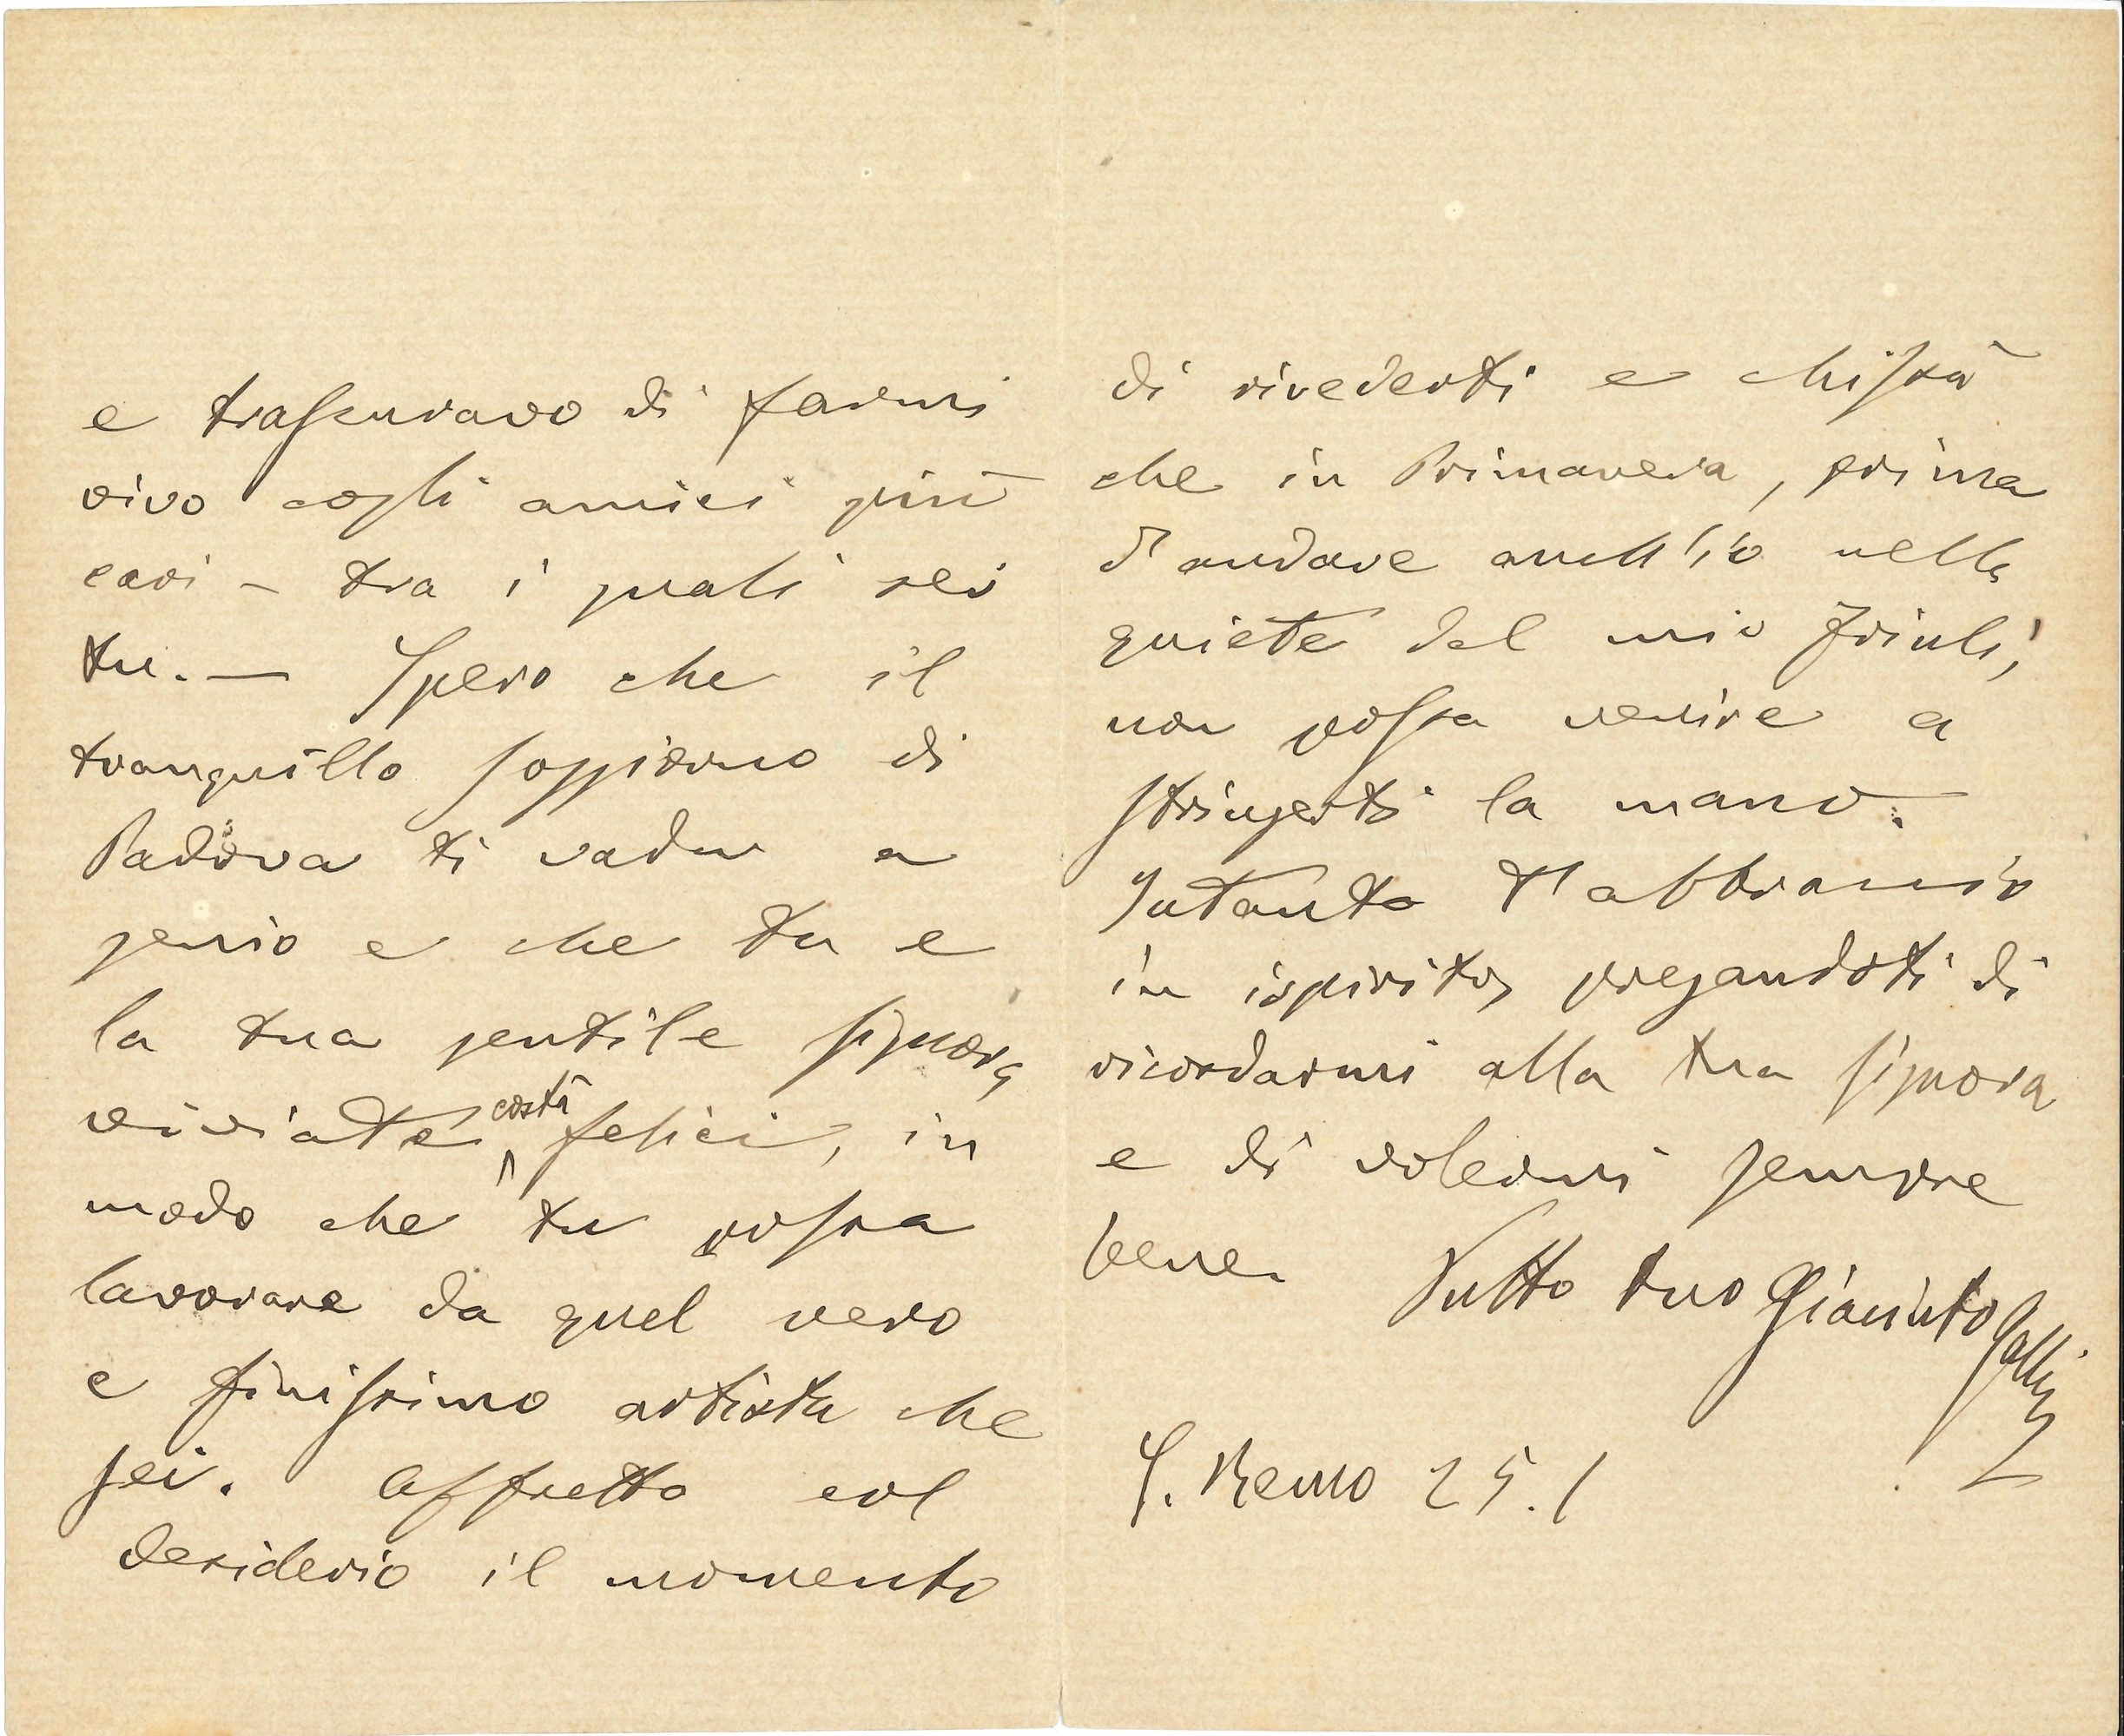 e trascuravo di farmi
vivo cogli amici più
cari – tra i quali sei
tu. — Spero che il
tranquillo soggiorno di
Padova ti vada a
genio e che tu e
la tua gentile signora
viviate costà felici, in
modo che tu possa
lavorare da quel vero
e finissimo artista che
sei. Affretto col
desiderio il momento
di rivederti e chissà
che in Primavera, prima
d'andare anch'io nella
quiete del mio Friuli,
non possa venire a
stringerti la mano.
Intanto t'abbraccio
in ispirito, pregandoti di
ricordarmi alla tua signora
e di volermi sempre
bene.
Tutto tuo Giacinto Gallina
S. Remo 25.1